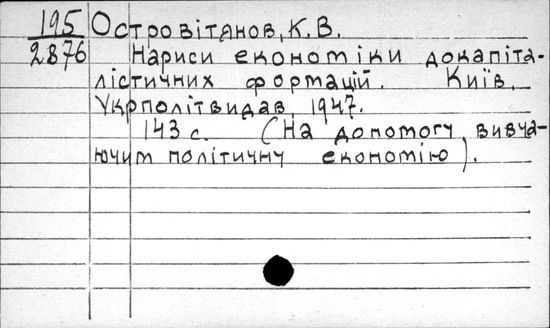 195 Островітянов, К. В.
2876 Нариси економіки докапіта-
лістичних формацій. Київ,
Укрполітвидав, 1947.
143 с. (На допомогу вивча-
ючим політичну економію).